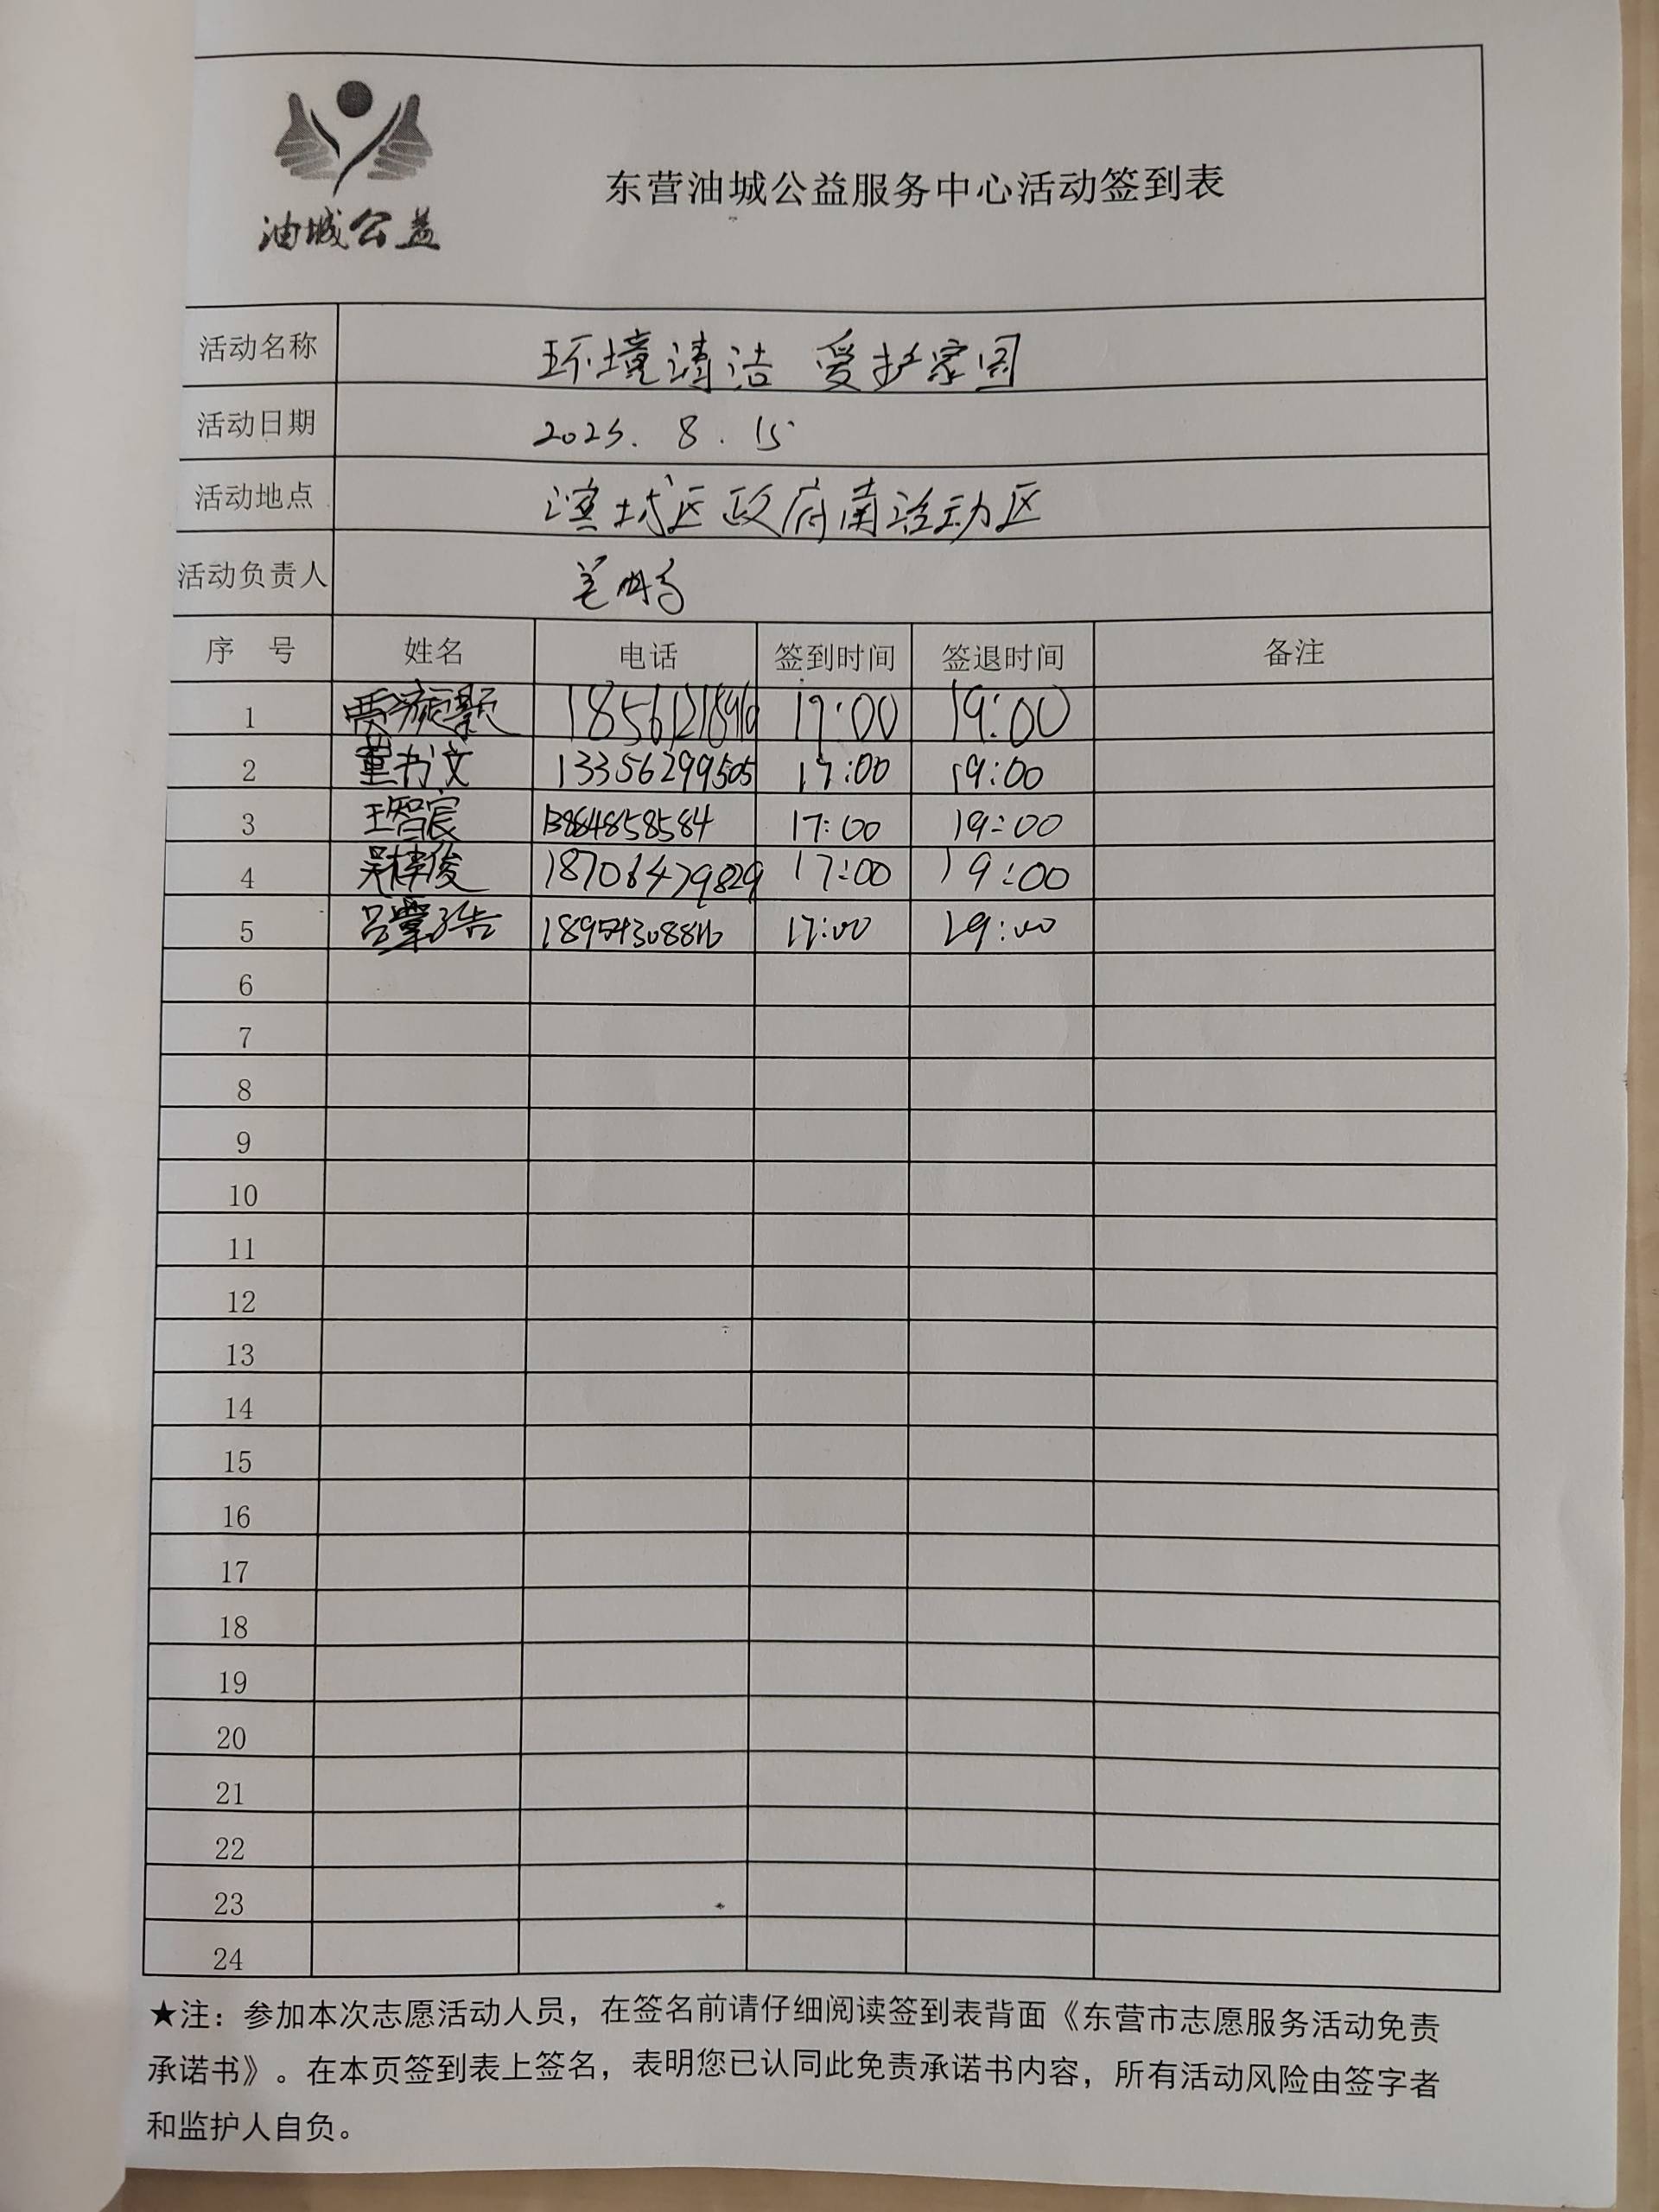 油城公益
东营油城公益服务中心活动签到表
活动名称 环境清洁 爱护家园
活动日期 2023. 8. 15
活动地点 滨城区政府南活动区
活动负责人
序 号 姓名 电话 签到时间 签退时间 备注
1 17:00 19:00
2 董书文 13356299505 17:00 19:00
3 王智宸 13864858584 17:00 19:00
4 18706479829 17:00 19:00
5 17:00 19:00
6
7
8
9
10
11
12
13
14
15
16
17
18
19
20
21
22
23
24
★注：参加本次志愿活动人员，在签名前请仔细阅读签到表背面《东营市志愿服务活动免责
承诺书》。在本页签到表上签名，表明您已认同此免责承诺书内容，所有活动风险由签字者
和监护人自负。